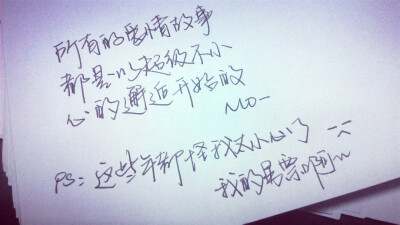 所有的爱情故事
都是以超级不小
心的邂逅开始的
PS:这些年都怪我太小心了
我的寡票啊~